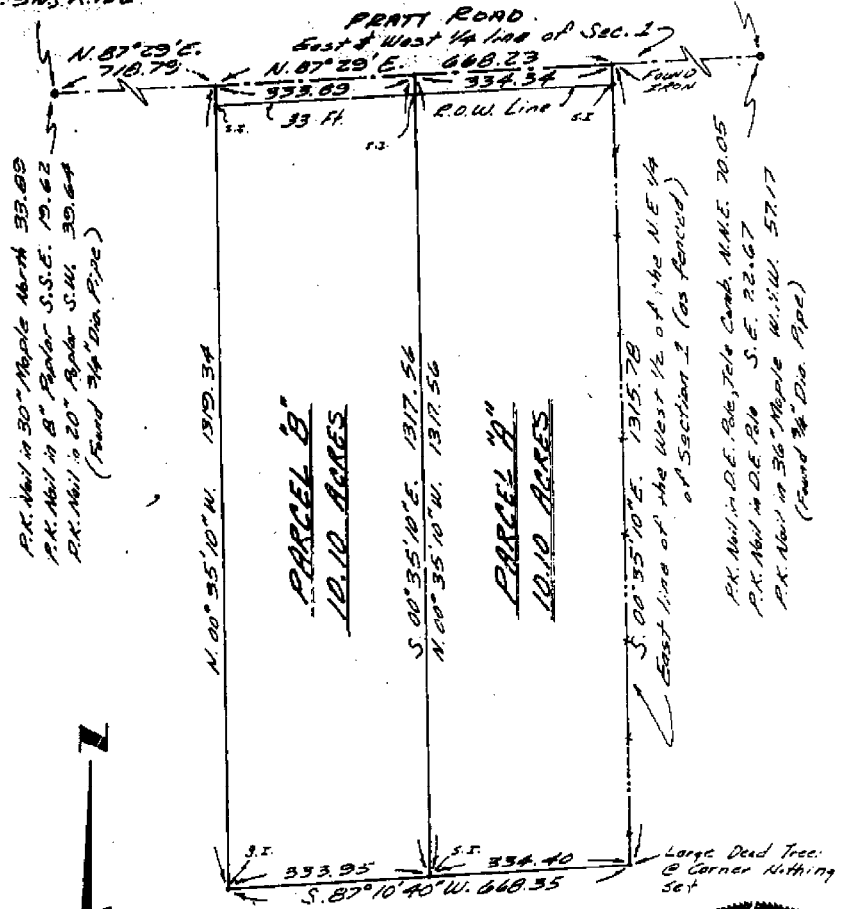 PRATT ROAD.
East & West 1/4 line of Sec. 1
N. 87° 29' E.
718.79
N. 87° 29' E. 668.23
333.89
334.34
FOUND IRON
S.I.
33 Ft.
R.O.W. Line
S.I.
S.I.
P.K. Nail in 30" Maple North 33.89
P.K. Nail in 8" Poplar S.S.E. 19.62
P.K. Nail in 20" Poplar S.W. 39.64
(Found 3/4" Dia. Pipe)
N. 00° 35' 10" W. 1319.34
PARCEL "B"
10.10 ACRES
S. 00° 35' 10" E. 1317.56
N. 00° 35' 10" W. 1317.56
PARCEL "A"
10.10 ACRES
S. 00° 35' 10" E. 1315.78
East line of the West 1/2 of the N.E 1/4
of Section 1 (as fenced)
P.K. Nail in D.E. Pole, Tele Comb. N.N.E. 70.05
P.K. Nail in D.E. Pole S.E. 22.67
P.K. Nail in 36" Maple W.N.W. 57.17
(Found 3/4" Dia. Pipe)
S.I.
333.95
S.I.
334.40
S. 87° 10' 40" W. 668.35
Large Dead Tree
@ Corner Nothing
Set